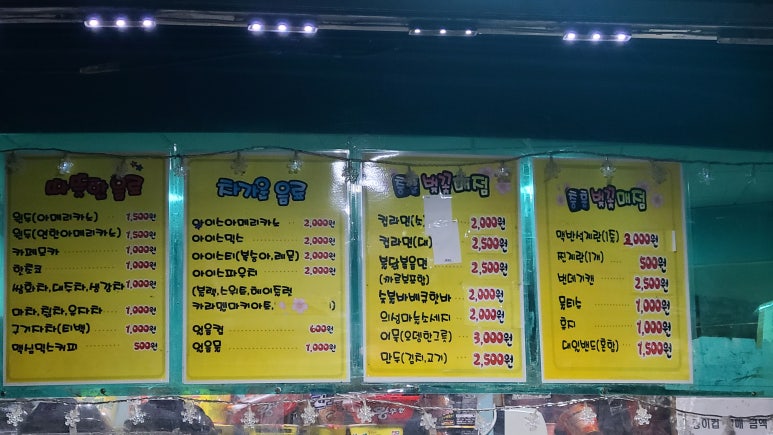 따뜻한 음료
원두(아메리카노) 1,500원
원두(연한아메리카노) 1,500원
카페모카 1,000원
핫쵸코 1,000원
쌍화차,대추차,생강차 1,000원
마차,립차,유자차 1,000원
구기자차(티백) 1,000원
맥심믹스커피 500원
차가운 음료
아이스아메리카노 2,000원
아이스믹스 2,000원
아이스티(복숭아,레몬) 2,000원
아이스파우치 2,000원
(블랙,스위트,헤이즐럿
카라멜마키아토, )
얼음컵 600원
얼음물 1,000원
벚꽃매점
컵라면(소) 2,000원
컵라면(대) 2,500원
불닭볶음면 2,500원
(까르보포함)
숯불바베큐핫바 2,000원
의성마늘소세지 2,000원
어묵(오뎅한그릇) 3,000원
만두(김치,고기) 2,500원
벚꽃매점
맥반석계란(1줄) 2,000원
찐계란(1개) 500원
번데기캔 2,500원
물티슈 1,000원
휴지 1,000원
대일밴드(혼합) 1,500원
금액